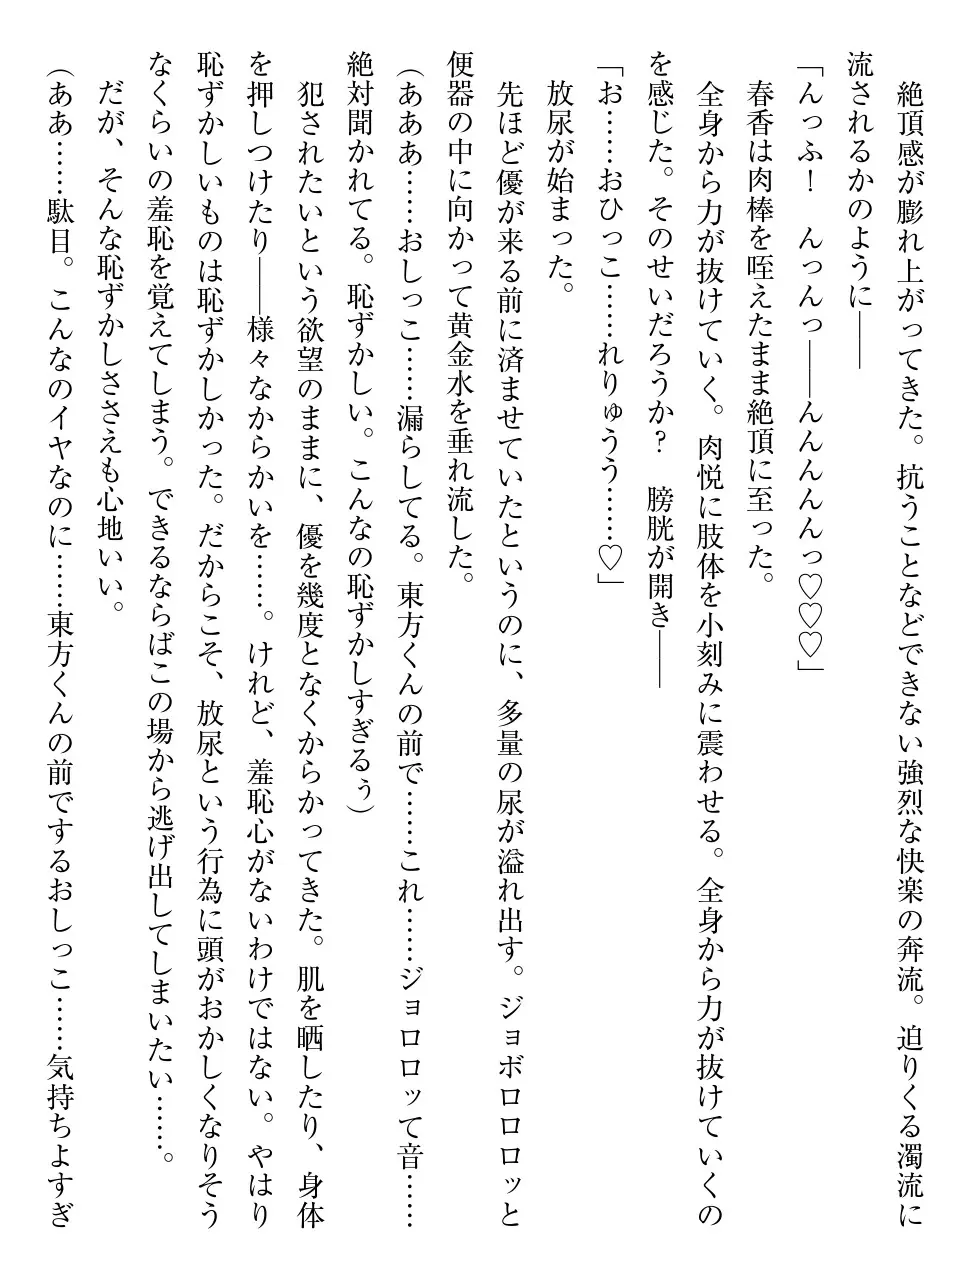 絶頂感が膨れ上がってきた。抗うことなどできない強烈な快楽の奔流。迫りくる濁流に
流されるかのように――
「んっふ！　んっんっ――んんんんんっ♡♡♡」
　春香は肉棒を咥えたまま絶頂に至った。
　全身から力が抜けていく。肉悦に肢体を小刻みに震わせる。全身から力が抜けていくの
を感じた。そのせいだろうか？　膀胱が開き――
「お……おひっこ……れりゅうう……♡」
　放尿が始まった。
　先ほど優が来る前に済ませていたというのに、多量の尿が溢れ出す。ジョボロロロッと
便器の中に向かって黄金水を垂れ流した。
（あああ……おしっこ……漏らしてる。東方くんの前で……これ……ジョロロッて音……
絶対聞かれてる。恥ずかしい。こんなの恥ずかしすぎるぅ）
　犯されたいという欲望のままに、優を幾度となくからかってきた。肌を晒したり、身体
を押しつけたり――様々なからかいを……。けれど、羞恥心がないわけではない。やはり
恥ずかしいものは恥ずかしかった。だからこそ、放尿という行為に頭がおかしくなりそう
なくらいの羞恥を覚えてしまう。できるならばこの場から逃げ出してしまいたい……。
　だが、そんな恥ずかしささえも心地いい。
（ああ……駄目。こんなのイヤなのに……東方くんの前でするおしっこ……気持ちよすぎ